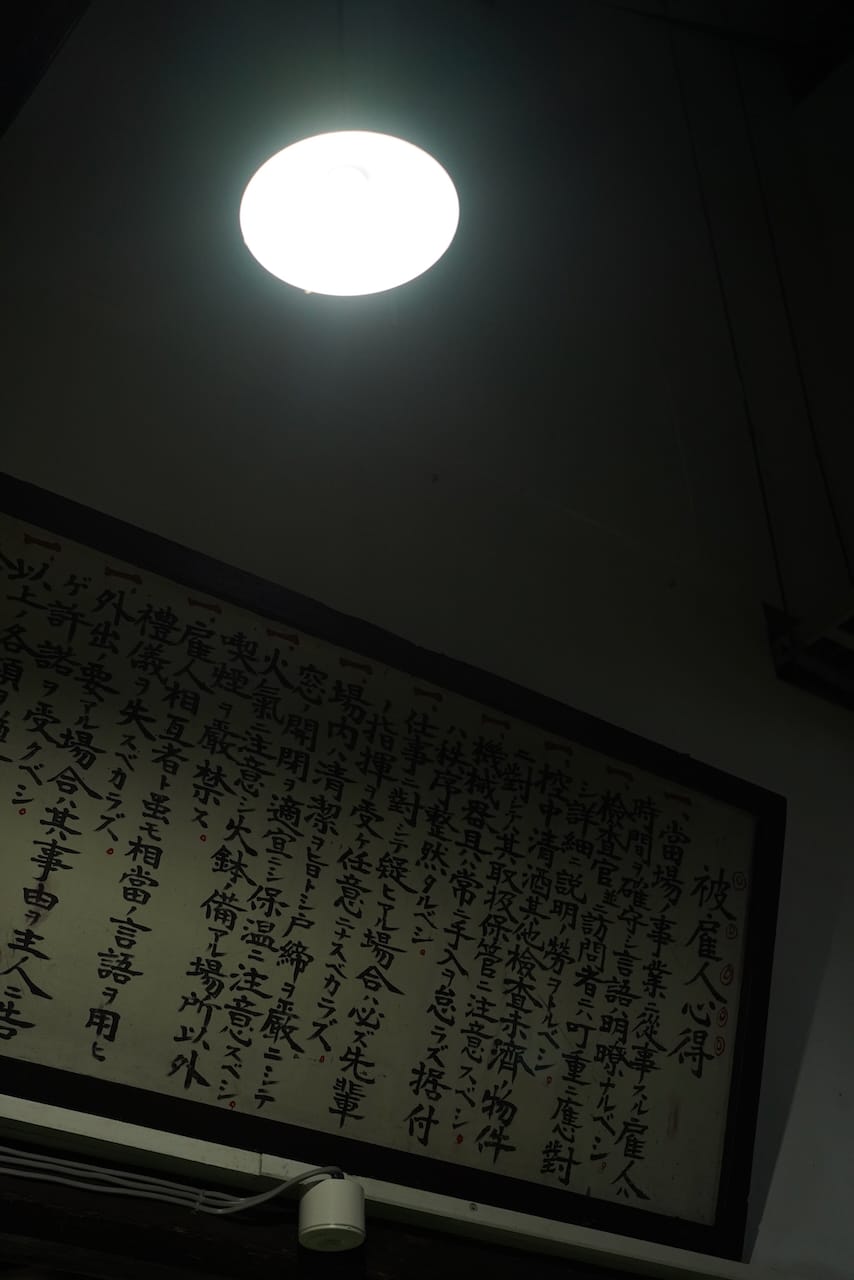 被雇人心得
一、當場ノ事業ニ從事スル雇人ハ
時間ヲ確守シ言語ハ明瞭ナルベシ。
一、檢査官並ニ訪問者ニハ叮重ニ應對
シ詳細ニ説明ノ勞ヲトルベシ。
一、控中清酒其他檢査未濟ノ物件
ニ對シテハ其取扱保管ニ注意スベシ。
一、機械器具ハ常ニ手入ヲ怠ラズ据付
ハ秩序整然タルベシ。
一、仕事ニ對シテ疑ヒアル場合ハ必ズ先輩
ノ指揮ヲ受ケ任意ニナスベカラズ。
一、場内ハ清潔ヲ旨トシ戸締ヲ嚴ニシテ
窓ノ開閉ヲ適宜ニシ保温ニ注意スベシ。
一、火氣ニ注意シ火鉢ノ備アル場所以外
喫煙ヲ嚴禁ス。
一、雇人相互者ト虽モ相當ノ言語ヲ用ヒ
禮儀ヲ失スベカラズ。
一、外出ノ要アル場合ハ其事由ヲ主人ニ告
ゲ許諾ヲ受クベシ。
以上ノ各項